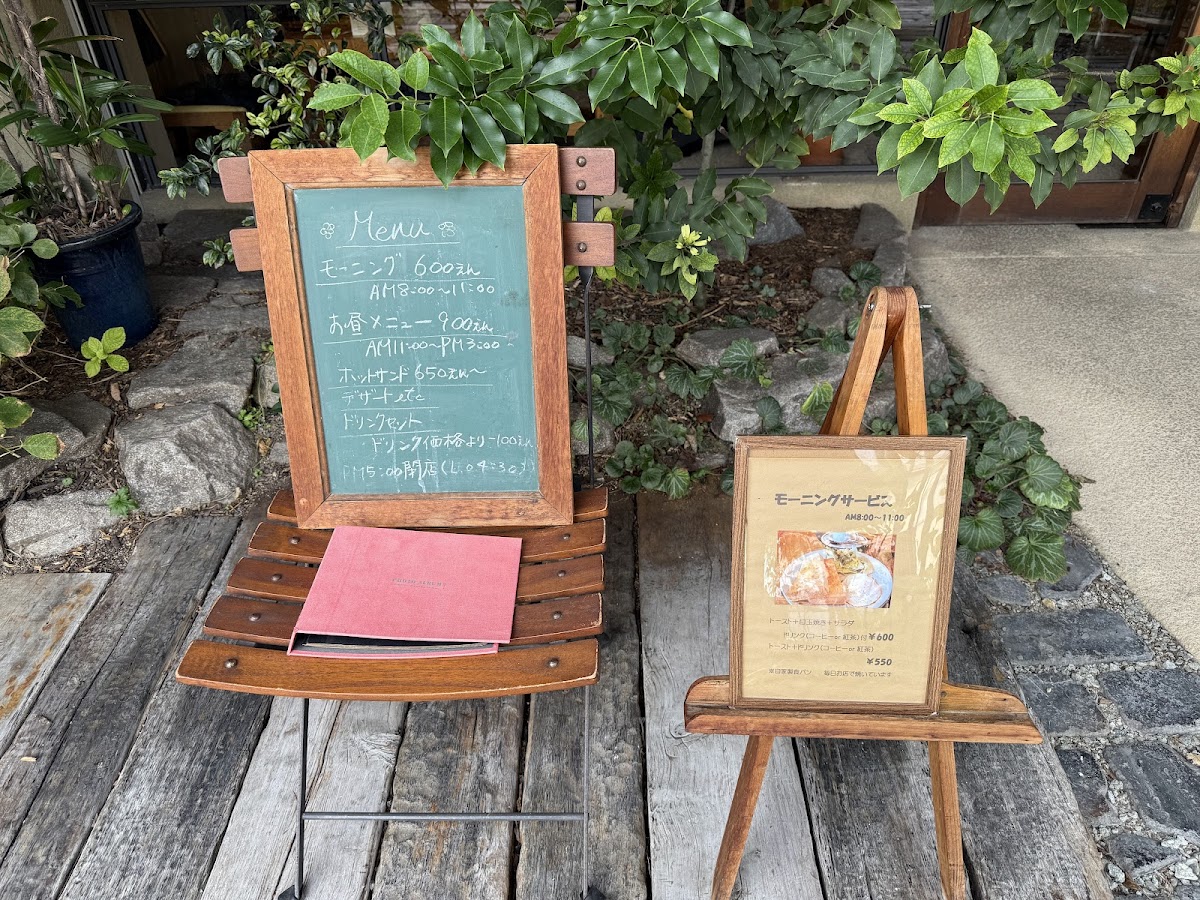 Menu
モーニング 600えん
AM8:00〜11:00
お昼メニュー 900えん
AM11:00〜PM3:00
ホットサンド 650えん〜
デザート etc
ドリンクセット
ドリンク価格より-100えん
PM5:00閉店(L.O 4:30)
モーニングサービス
AM8:00〜11:00
トースト+目玉焼き+サラダ
ドリンク(コーヒーor 紅茶)付¥600
トースト+ドリンク(コーヒーor 紅茶)
¥550
※自家製食パン 毎日お店で焼いています